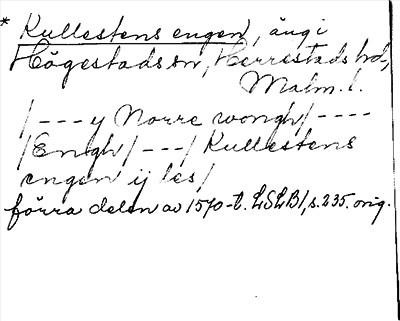 * Kullestens engen, äng i
Högestads sn, Herrestads hd,
Malm. l.
/ --- y Norre wongh / ----
/ Engh / --- / Kullestens
engen ij les /
förra delen av 1570-t. LSLB1, s. 235. orig.